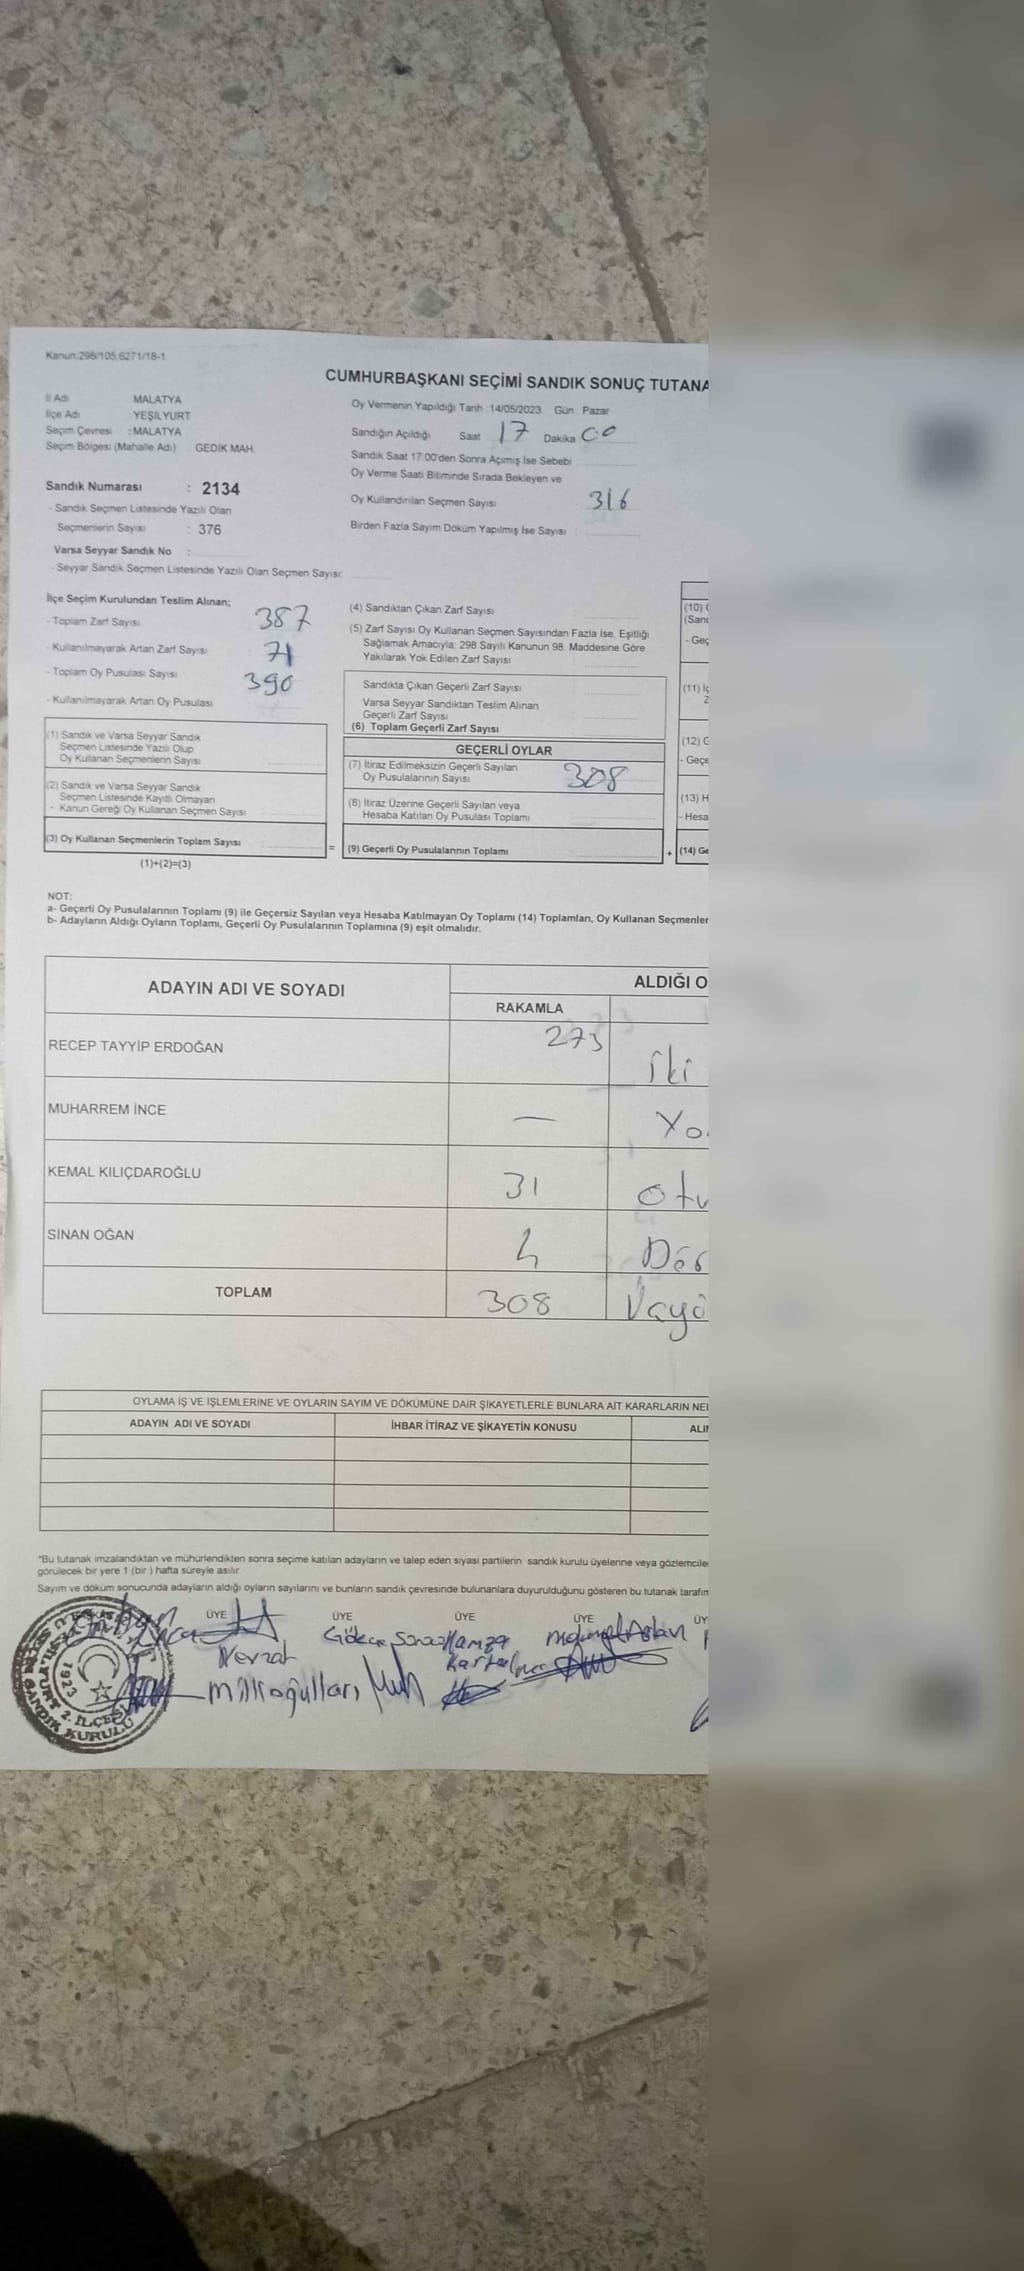 Kanun.298/105,6271/18-1
CUMHURBAŞKANI SEÇİMİ SANDIK SONUÇ TUTANA
İl Adı MALATYA
İlçe Adı : YEŞİLYURT
Seçim Çevresi : MALATYA
Seçim Bölgesi (Mahalle Adı) GEDİK MAH.
Oy Vermenin Yapıldığı Tarih : 14/05/2023 Gün Pazar
Sandığın Açıldığı Saat 17 Dakika 00
Sandık Saat 17:00'den Sonra Açımış İse Sebebi
Oy Verme Saati Bitiminde Sırada Bekleyen ve
Oy Kullandırılan Seçmen Sayısı 316
Birden Fazla Sayım Döküm Yapılmış İse Sayısı :
Sandık Numarası : 2134
- Sandık Seçmen Listesinde Yazılı Olan
Seçmenlerin Sayısı : 376
Varsa Seyyar Sandık No :
- Seyyar Sandık Seçmen Listesinde Yazılı Olan Seçmen Sayısı:
İlçe Seçim Kurulundan Teslim Alınan;
- Toplam Zarf Sayısı 387
- Kullanılmayarak Artan Zarf Sayısı 71
- Toplam Oy Pusulası Sayısı 390
- Kullanılmayarak Artan Oy Pusulası
(1) Sandık ve Varsa Seyyar Sandık
Seçmen Listesinde Yazılı Olup
Oy Kullanan Seçmenlerin Sayısı
(2) Sandık ve Varsa Seyyar Sandık
Seçmen Listesinde Kayıtlı Olmayan
- Kanun Gereği Oy Kullanan Seçmen Sayısı
(3) Oy Kullanan Seçmenlerin Toplam Sayısı
(1)+(2)=(3)
=
(4) Sandıktan Çıkan Zarf Sayısı
(5) Zarf Sayısı Oy Kullanan Seçmen Sayısından Fazla İse, Eşitliği
Sağlamak Amacıyla, 298 Sayılı Kanunun 98. Maddesine Göre
Yakılarak Yok Edilen Zarf Sayısı
Sandıkta Çıkan Geçerli Zarf Sayısı
Varsa Seyyar Sandıktan Teslim Alınan
Geçerli Zarf Sayısı
(6) Toplam Geçerli Zarf Sayısı
GEÇERLİ OYLAR
(7) İtiraz Edilmeksizin Geçerli Sayılan
Oy Pusulalarının Sayısı 308
(8) İtiraz Üzerine Geçerli Sayılan veya
Hesaba Katılan Oy Pusulası Toplamı
(9) Geçerli Oy Pusulalarının Toplamı
+
(10)
(Sand
- Geç
(11)
(12) G
- Geçe
(13) H
- Hesa
(14) Ge
NOT:
a- Geçerli Oy Pusulalarının Toplamı (9) ile Geçersiz Sayılan veya Hesaba Katılmayan Oy Toplamı (14) Toplamları, Oy Kullanan Seçmenler
b- Adayların Aldığı Oyların Toplamı, Geçerli Oy Pusulalarının Toplamına (9) eşit olmalıdır.
ADAYIN ADI VE SOYADI ALDIĞI O
RAKAMLA
RECEP TAYYİP ERDOĞAN 273 iki
MUHARREM İNCE — Yo
KEMAL KILIÇDAROĞLU 31 otu
SİNAN OĞAN 4 Dör
TOPLAM 308
OYLAMA İŞ VE İŞLEMLERİNE VE OYLARIN SAYIM VE DÖKÜMÜNE DAİR ŞİKAYETLERLE BUNLARA AİT KARARLARIN NEL
ADAYIN ADI VE SOYADI İHBAR İTİRAZ VE ŞİKAYETİN KONUSU ALI
*Bu tutanak imzalandıktan ve mühürlendikten sonra seçime katılan adayların ve talep eden siyasi partilerin sandık kurulu üyelerine veya gözlemcile
görülecek bir yere 1 (bir ) hafta süreyle asılır.
Sayım ve döküm sonucunda adayların aldığı oyların sayılarını ve bunların sandık çevresinde bulunanlara duyurulduğunu gösteren bu tutanak tarafım
ÜYE ÜYE ÜYE ÜYE ÜY
Nevzat
Hamza
Mehmet Arslan
1923
2. İLÇESİ
SANDIK KURULU